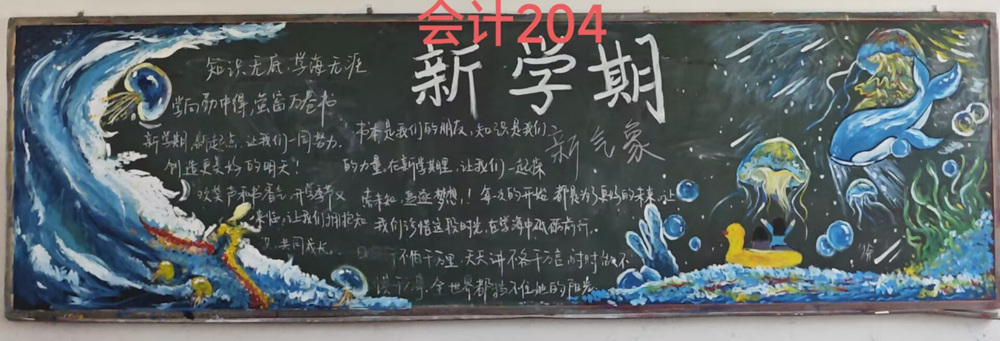 会计204
新学期
新气象
知识无底，学海无涯
学问勤中得，萤窗万卷书
新学期，新起点，让我们一同努力，
创造更美好的明天！
欢笑声和书香气，开学季又
来临，让我们拥抱知
共同成长。
书本是我们的朋友，知识是我们
的力量，在新学期里，让我们一起探
索知 追逐梦想！每一次的开始 都是为了更好的未来，让
我们珍惜这段时光，在学海中砥砺前行。
不怕千万里，天天讲不吝千万言，时时做不
全世界都挡不住他的阳光